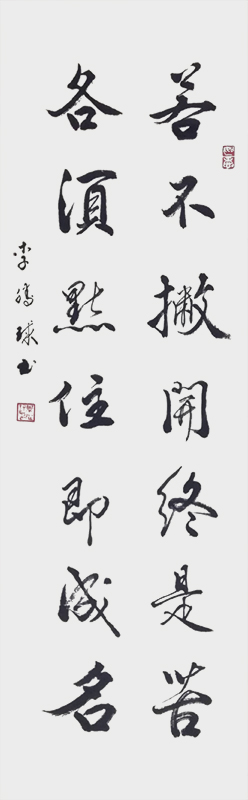 若不撇開終是苦
各須點住即成名
李 球书